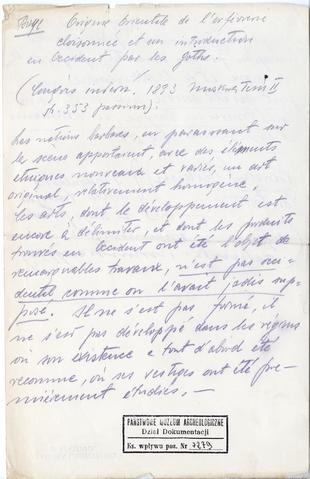 Baye Origine Orientale de l'orfèvrerie
cloisonnée et son introduction
en Occident par les Goths.
(Congrès internt. 1893 Moskwa Tom II
str. 353 passim).
Les nations barbares, en paraissant sur
la scène apportaient, avec des éléments
etniques nouveaux et variés, un art
original, relativement homogène.
les arts, dont le développement est
encore à délimiter, et dont les produits
trouvés en Occident ont été l'objet de
remarquables travaux, n'est pas occi-
dental comme on l'avait jadis sup-
posé. Il ne s'est pas formé, il
ne s'est pas développé dans les régions
où son existence a tout d'abord été
reconnue, où ses vestiges ont été pre-
mièrement étudiés. —
PAŃSTWOWE MUZEUM ARCHEOLOGICZNE
Dział Dokumentacji
Ks. wpływu poz. Nr 7279